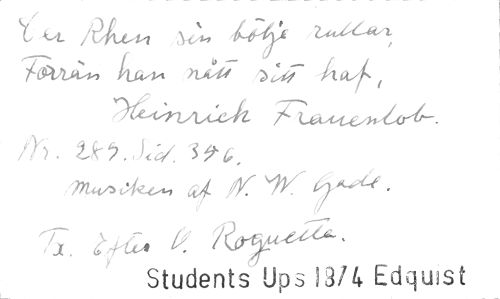 Der Rhen sin bölja rullar,
Förrän han nått sitt haf,
Heinrich Frauenlob.
Nr. 289. Sid. 356.
Musiken af N. W. Gade.
Tx. Efter O. Roquette.
Students Ups 1874 Edquist